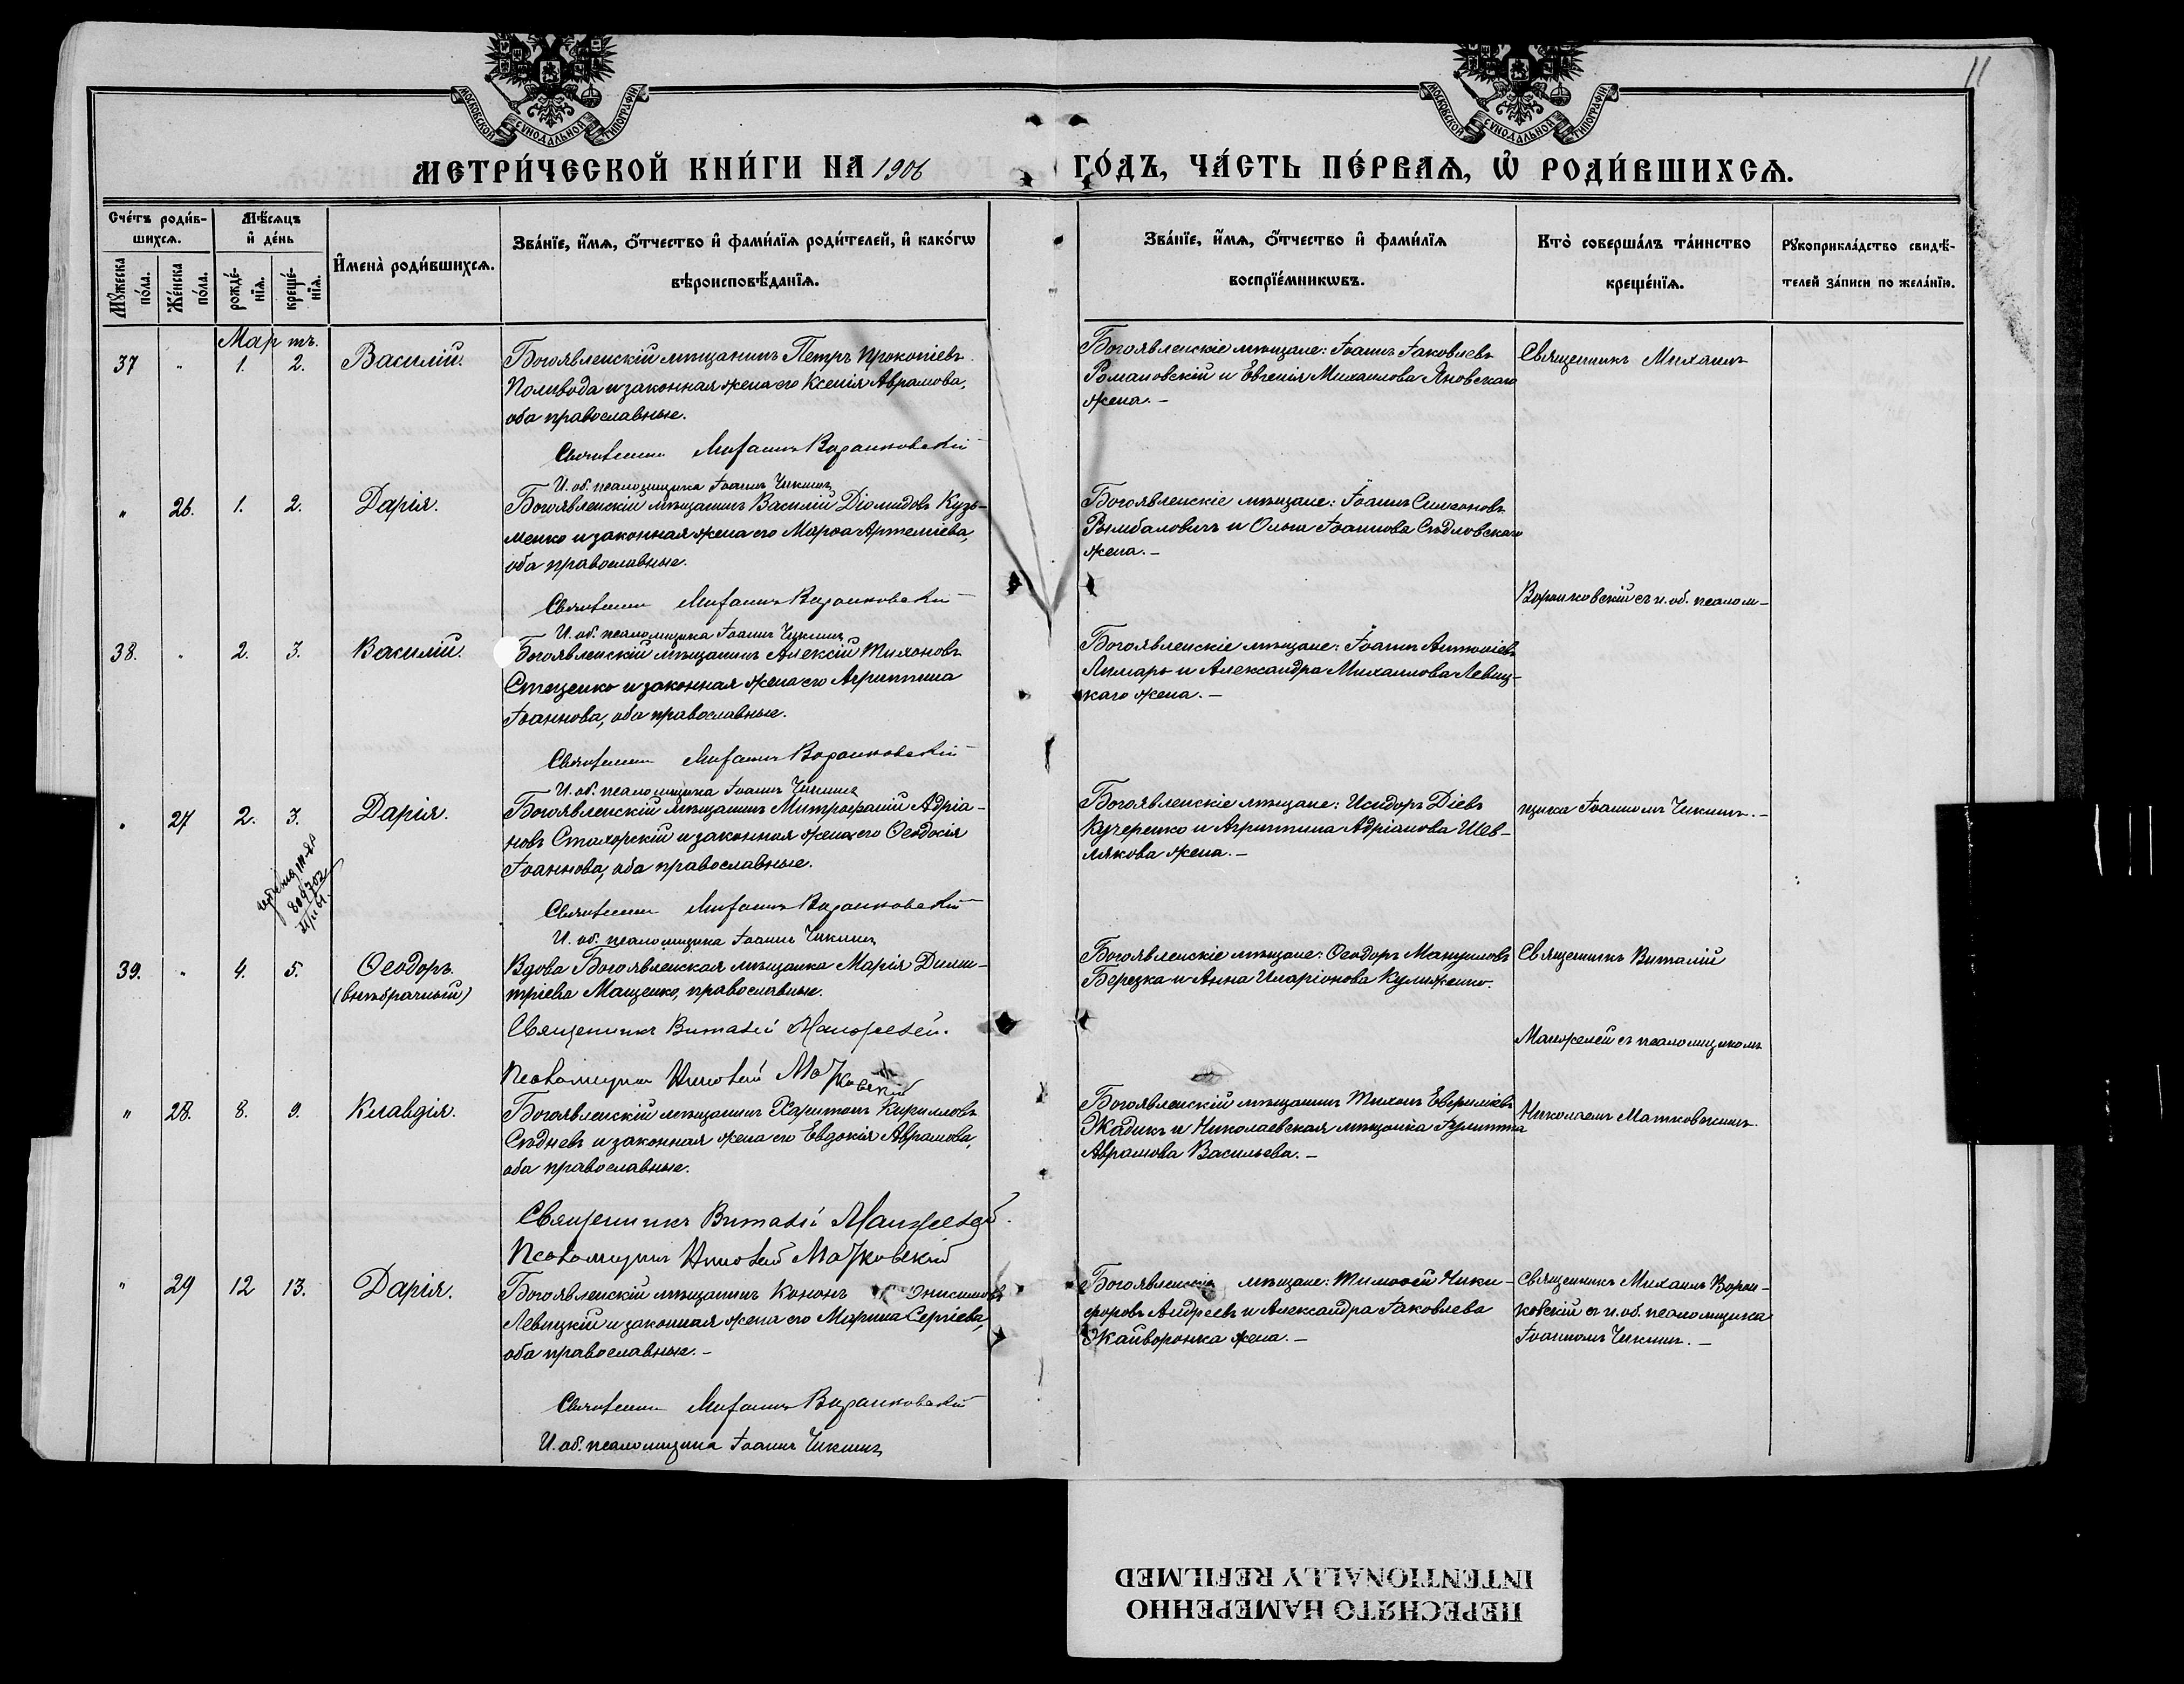 11
МОСКОВСКОЙ СУНОДАЛЬНОЙ ТИПОГРАФІИ
МОСКОВСКОЙ СУНОДАЛЬНОЙ ТИПОГРАФІИ
МЕТРИ́ЧЕСКОЙ КНИ́ГИ НА 1906 ГО́ДЪ, ЧА́СТЬ ПЕ́РВАѦ, Ѡ РОДИ́ВШИХСѦ.
Сче́тъ роди́в-
шихсѧ.
Мѣ́сѧцъ
и҆ де́нь
Мꙋ́жеска по́ла.
Же́нска по́ла.
рожде́-
нїѧ.
креще́-
нїѧ.
И҆мена̀ роди́вшихсѧ.
Зва́нїе, и҆́мѧ, ѻ҆́тчество и҆ фами́лїѧ роди́телей, и҆ како́гѡ
вѣроисповѣ́данїѧ.
Зва́нїе, и҆́мѧ, ѻ҆́тчество и҆ фами́лїѧ
воспрїе́мникѡвъ.
Кто̀ соверша́лъ та́инство
креще́нїѧ.
Рꙋкоприкла́дство свидѣ́-
телей за́писи по жела́нїю.
Мартъ.
37 " 1. 2. Василій.
Богоявленскій мѣщанинъ Петръ Прокопіевъ
Поливода и законная жена его Ксенія Аврамова,
оба православные.
Священникъ Михаилъ Воронковскій
И. об. псаломщика Іоаннъ Чикинъ
Богоявленскіе мѣщане: Іоаннъ Іаковлевъ
Романовскій и Евгенія Михаилова Яновскаго
жена.-
Священникъ Михаилъ
" 26. 1. 2. Дарія.
Богоявленскій мѣщанинъ Василій Діомидовъ Кузь-
менко и законная жена его Марѳа Артеміева,
оба православные.
Священникъ Михаилъ Воронковскій
И. об. псаломщика Іоаннъ Чикинъ
Богоявленскіе мѣщане: Іоаннъ Симеоновъ
Рымбаловичъ и Ольга Іоаннова Сѣдловскаго
жена.-
Воронковскій съ и. об. псалом-
38. " 2. 3. Василій.
Богоявленскій мѣщанинъ Алексій Тихоновъ
Стеценко и законная жена его Агриппина
Іоаннова, оба православные.
Священникъ Михаилъ Воронковскій
И. об. псаломщика Іоаннъ Чикинъ
Богоявленскіе мѣщане: Іоаннъ Антоніевъ
Лимарь и Александра Михаилова Левиц-
каго жена.-
" 27 2. 3. Дарія.
Богоявленскій мѣщанинъ Митрофаній Адріа-
новъ Стахорскій и законная жена его Ѳеодосія
Іоаннова, оба православные.
Священникъ Михаилъ Воронковскій
И. об. псаломщика Іоаннъ Чикинъ
Богоявленскіе мѣщане: Исидоръ Діевъ
Кучеренко и Агриппина Адріанова Шев-
лякова жена.-
щика Іоанномъ Чикинъ.-
39. " 4. 5. Ѳеодоръ.
(внѣбрачный)
Вдова Богоявленская мѣщанка Марія Дими-
тріева Мащенко, православные.
Священникъ Виталій Манжелей.
Псаломщикъ Николай Матковскій
Богоявленскіе мѣщане: Ѳеодоръ Мануиловъ
Березка и Анна Иларіонова Кулиженко.
Священникъ Виталій
Манжелей съ псаломщикомъ
" 28. 8. 9. Клавдія.
Богоявленскій мѣщанинъ Харитонъ Кирилловъ
Сѣдневъ и законная жена его Евдокія Аврамова,
оба православные.
Священникъ Виталій Манжелей.
Псаломщикъ Николай Матковскій
Богоявленскій мѣщанинъ Тихонъ
Жадикъ и Николаевская мѣщанка Іулитта
Аврамова Васильева.-
Николаемъ Матковскимъ.
" 29 12 13. Дарія.
Богоявленскій мѣщанинъ Кононъ Онисимовъ
Левицкій и законная жена его Марина Сергіева,
оба православные.-
Священникъ Михаилъ Воронковскій
И. об. псаломщика Іоаннъ Чикинъ
Богоявленскіе мѣщане: Тимоѳей Ники-
форовъ Андреевъ и Александра Іаковлева
Жайворонка жена.-
Священникъ Михаилъ Ворон-
ковскій съ и. об. псаломщика
Іоанномъ Чикинъ.-
ПЕРЕСНЯТО НАМЕРЕННО
INTENTIONALLY REFILMED